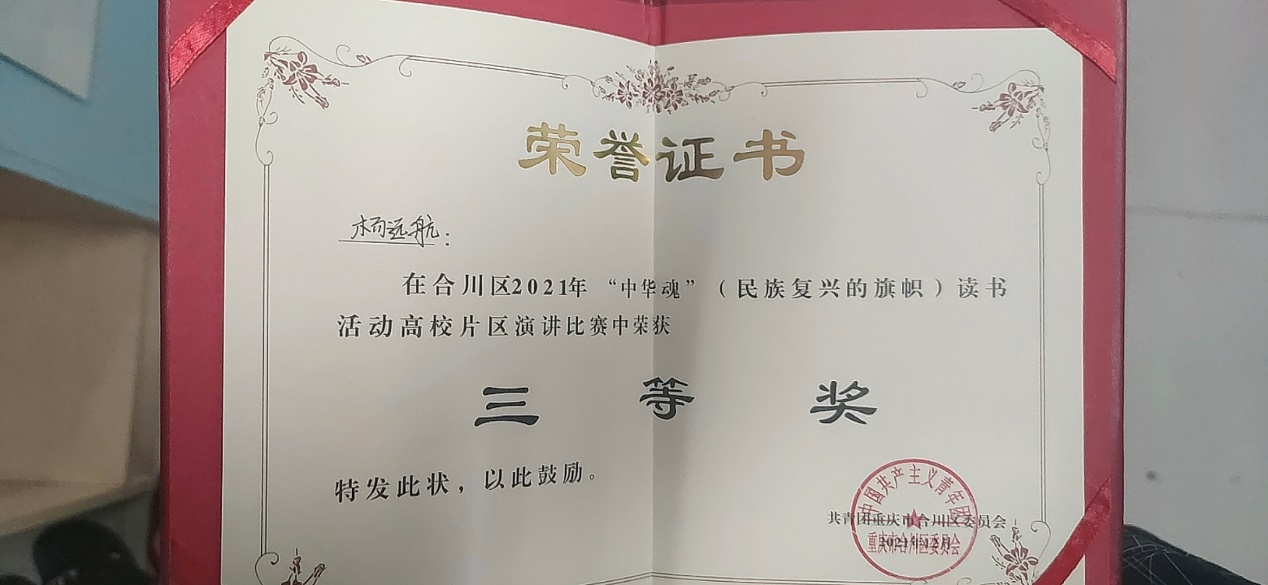 荣誉证书
杨远航：
在合川区2021年“中华魂”（民族复兴的旗帜）读书
活动高校片区演讲比赛中荣获
三等奖
特发此状，以此鼓励。
中国共产主义青年团
共青团重庆市合川区委员会
2021年12月
重庆市合川区委员会